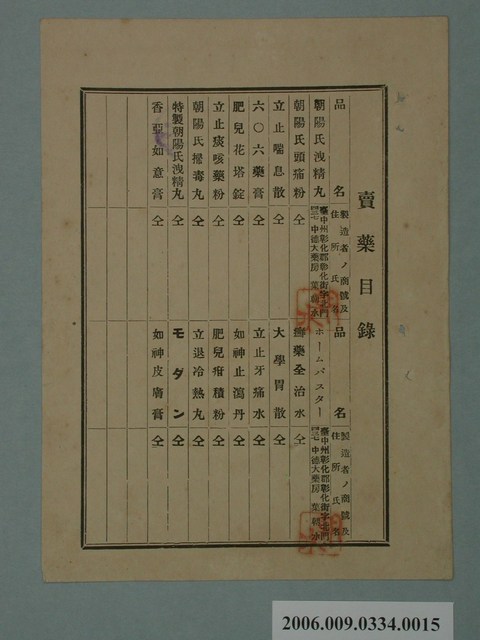 賣藥目錄
品名
製造者ノ商號及住所氏名
朝陽氏洩精丸
臺中州彰化郡彰化街字北門
中德大藥房 葉朝水
朝陽氏頭痛粉 仝
立止喘息散 仝
六〇六藥膏 仝
肥兒花塔錠 仝
立止痰咳藥粉 仝
朝陽氏掃毒丸 仝
特製朝陽氏洩精丸 仝
香亞如意膏 仝
品名
製造者ノ商號及住所氏名
ホームパスター
臺中州彰化郡彰化街字北門
中德大藥房 葉朝水
藥全治水 仝
大學胃散 仝
立止牙痛水 仝
如神止瀉丹 仝
肥兒疳積粉 仝
立退冷熱丸 仝
モダン 仝
如神皮膚膏 仝
2006.009.0334.0015